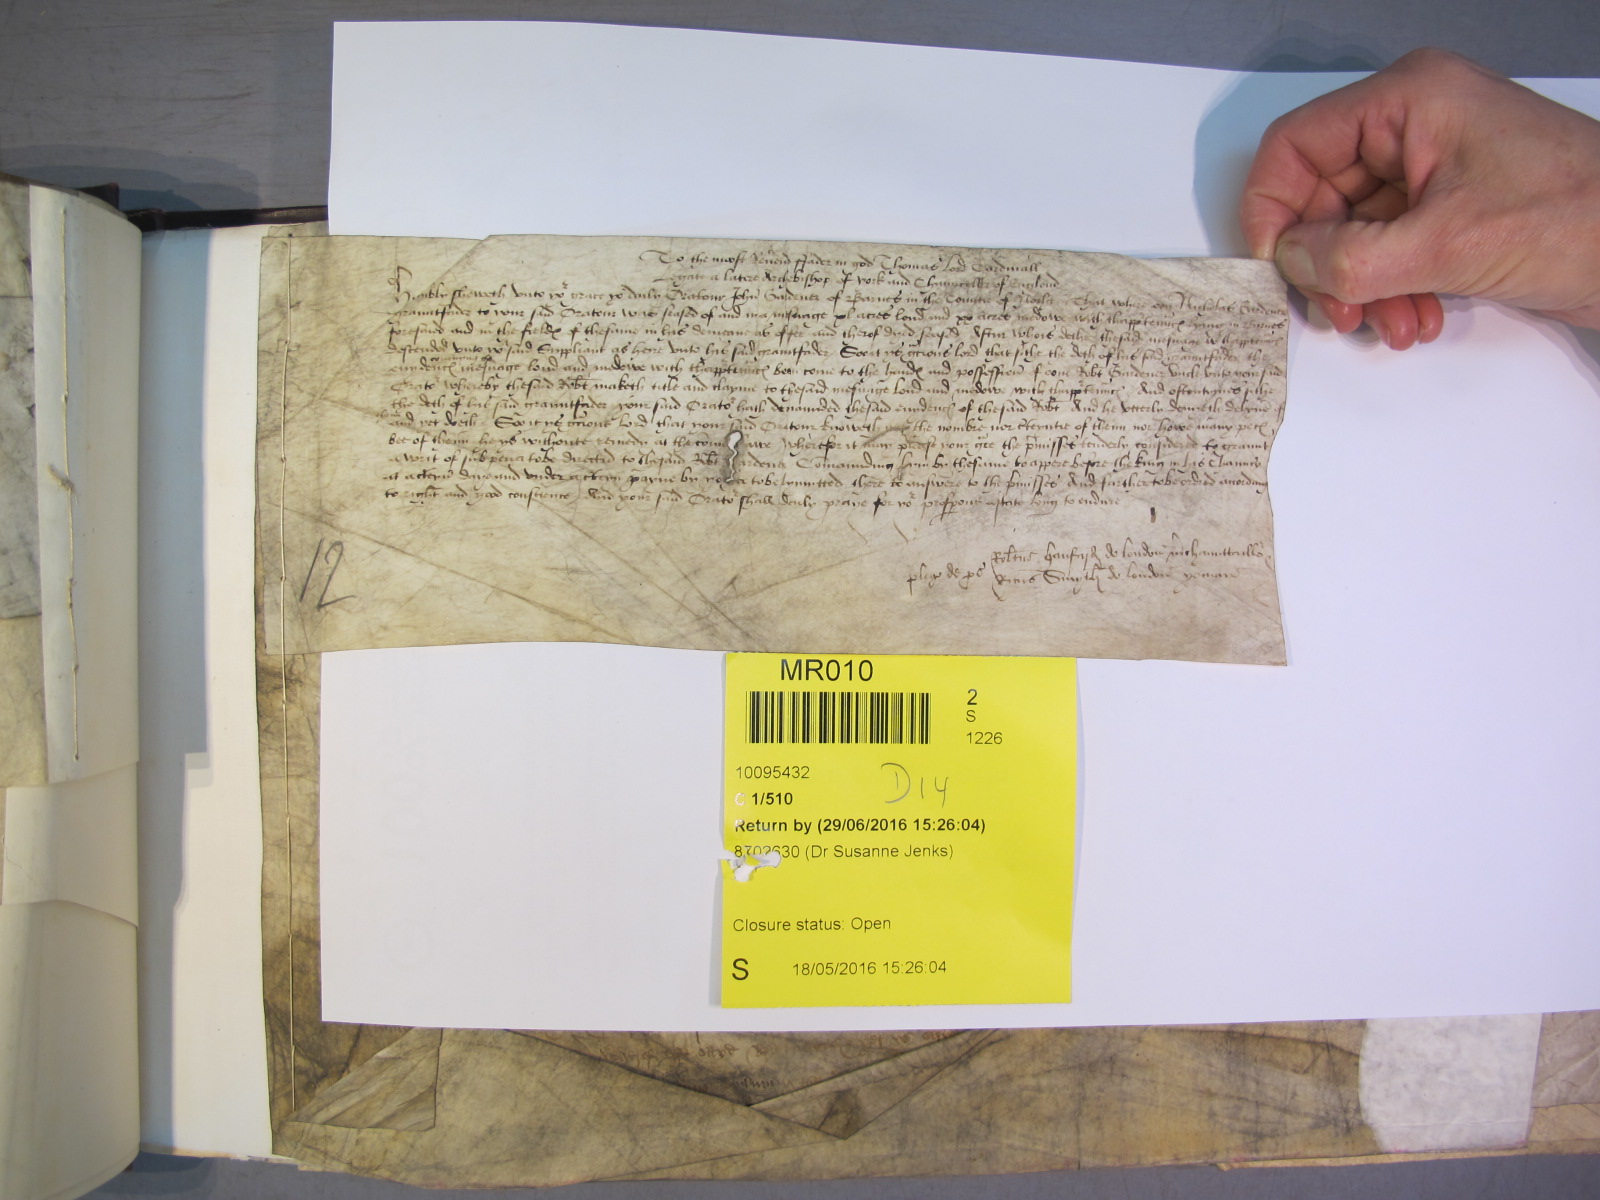 To the moost Reverend ffader in god Thomas Lord Cardinall
Legate a latere Archebishop of york and Chaunceller of England
Humbly sheweth unto yor grace yor dayly Oratour John Gardener of Barnes in the Countie of That where oon Nicholas Gardener
grauntfader to your said Oratour was seased of and in a mesuage xl acres lond and xx acres medowe with thappurtenñc lying in Barnes
foresaid and in the feldes of thesame in his demeane as of fee and therof dyed seased After whois dethe thesaid mesuage wt thappurtenñc
descended unto yor said Suppliant as heire unto his said grauntfader Soo it is gracious lord that sithe the deth of his said grauntfader the
evidencs mesuage lond and medowe with thappurtenñc been come to the hands and possession of oon Robt Gardener uncle unto your said
Orator wherby thesaid Robt maketh title and clayme to thesaid mesuage lond and medowe with thappurtenñc And oftentymes sithe
the deth of his said grauntfader your said Orator hath demaunded thesaid evidencs of thesaid Robt And he utterly denyeth
and yet doeth Soo it is gracious Lord that your said Oratour knoweth not the nombre nor certentie of theim nor howe many
bee of theim he is withoute remedy at the comen lawe Wherefor it may please your grace the premisses tenderly considered to graunt
a writ of subpena to be directed to thesaid Robt Gardener Comaunding hym by thesame to appere before the king in his Chauncery
at a certeyn day and under a certeyn payne by your to be lymitted there to answere to the premisses And further to be ordred according
to right and good conscience And your said Orator shall dayly praye for yor prosperous astate long to endure
Robtus de london
pleg de ps Ricus Smyth de london yoman
12
MR010
2
S
1226
10095432
D14
C 1/510
Return by (29/06/2016 15:26:04)
8702630 (Dr Susanne Jenks)
Closure status: Open
S 18/05/2016 15:26:04